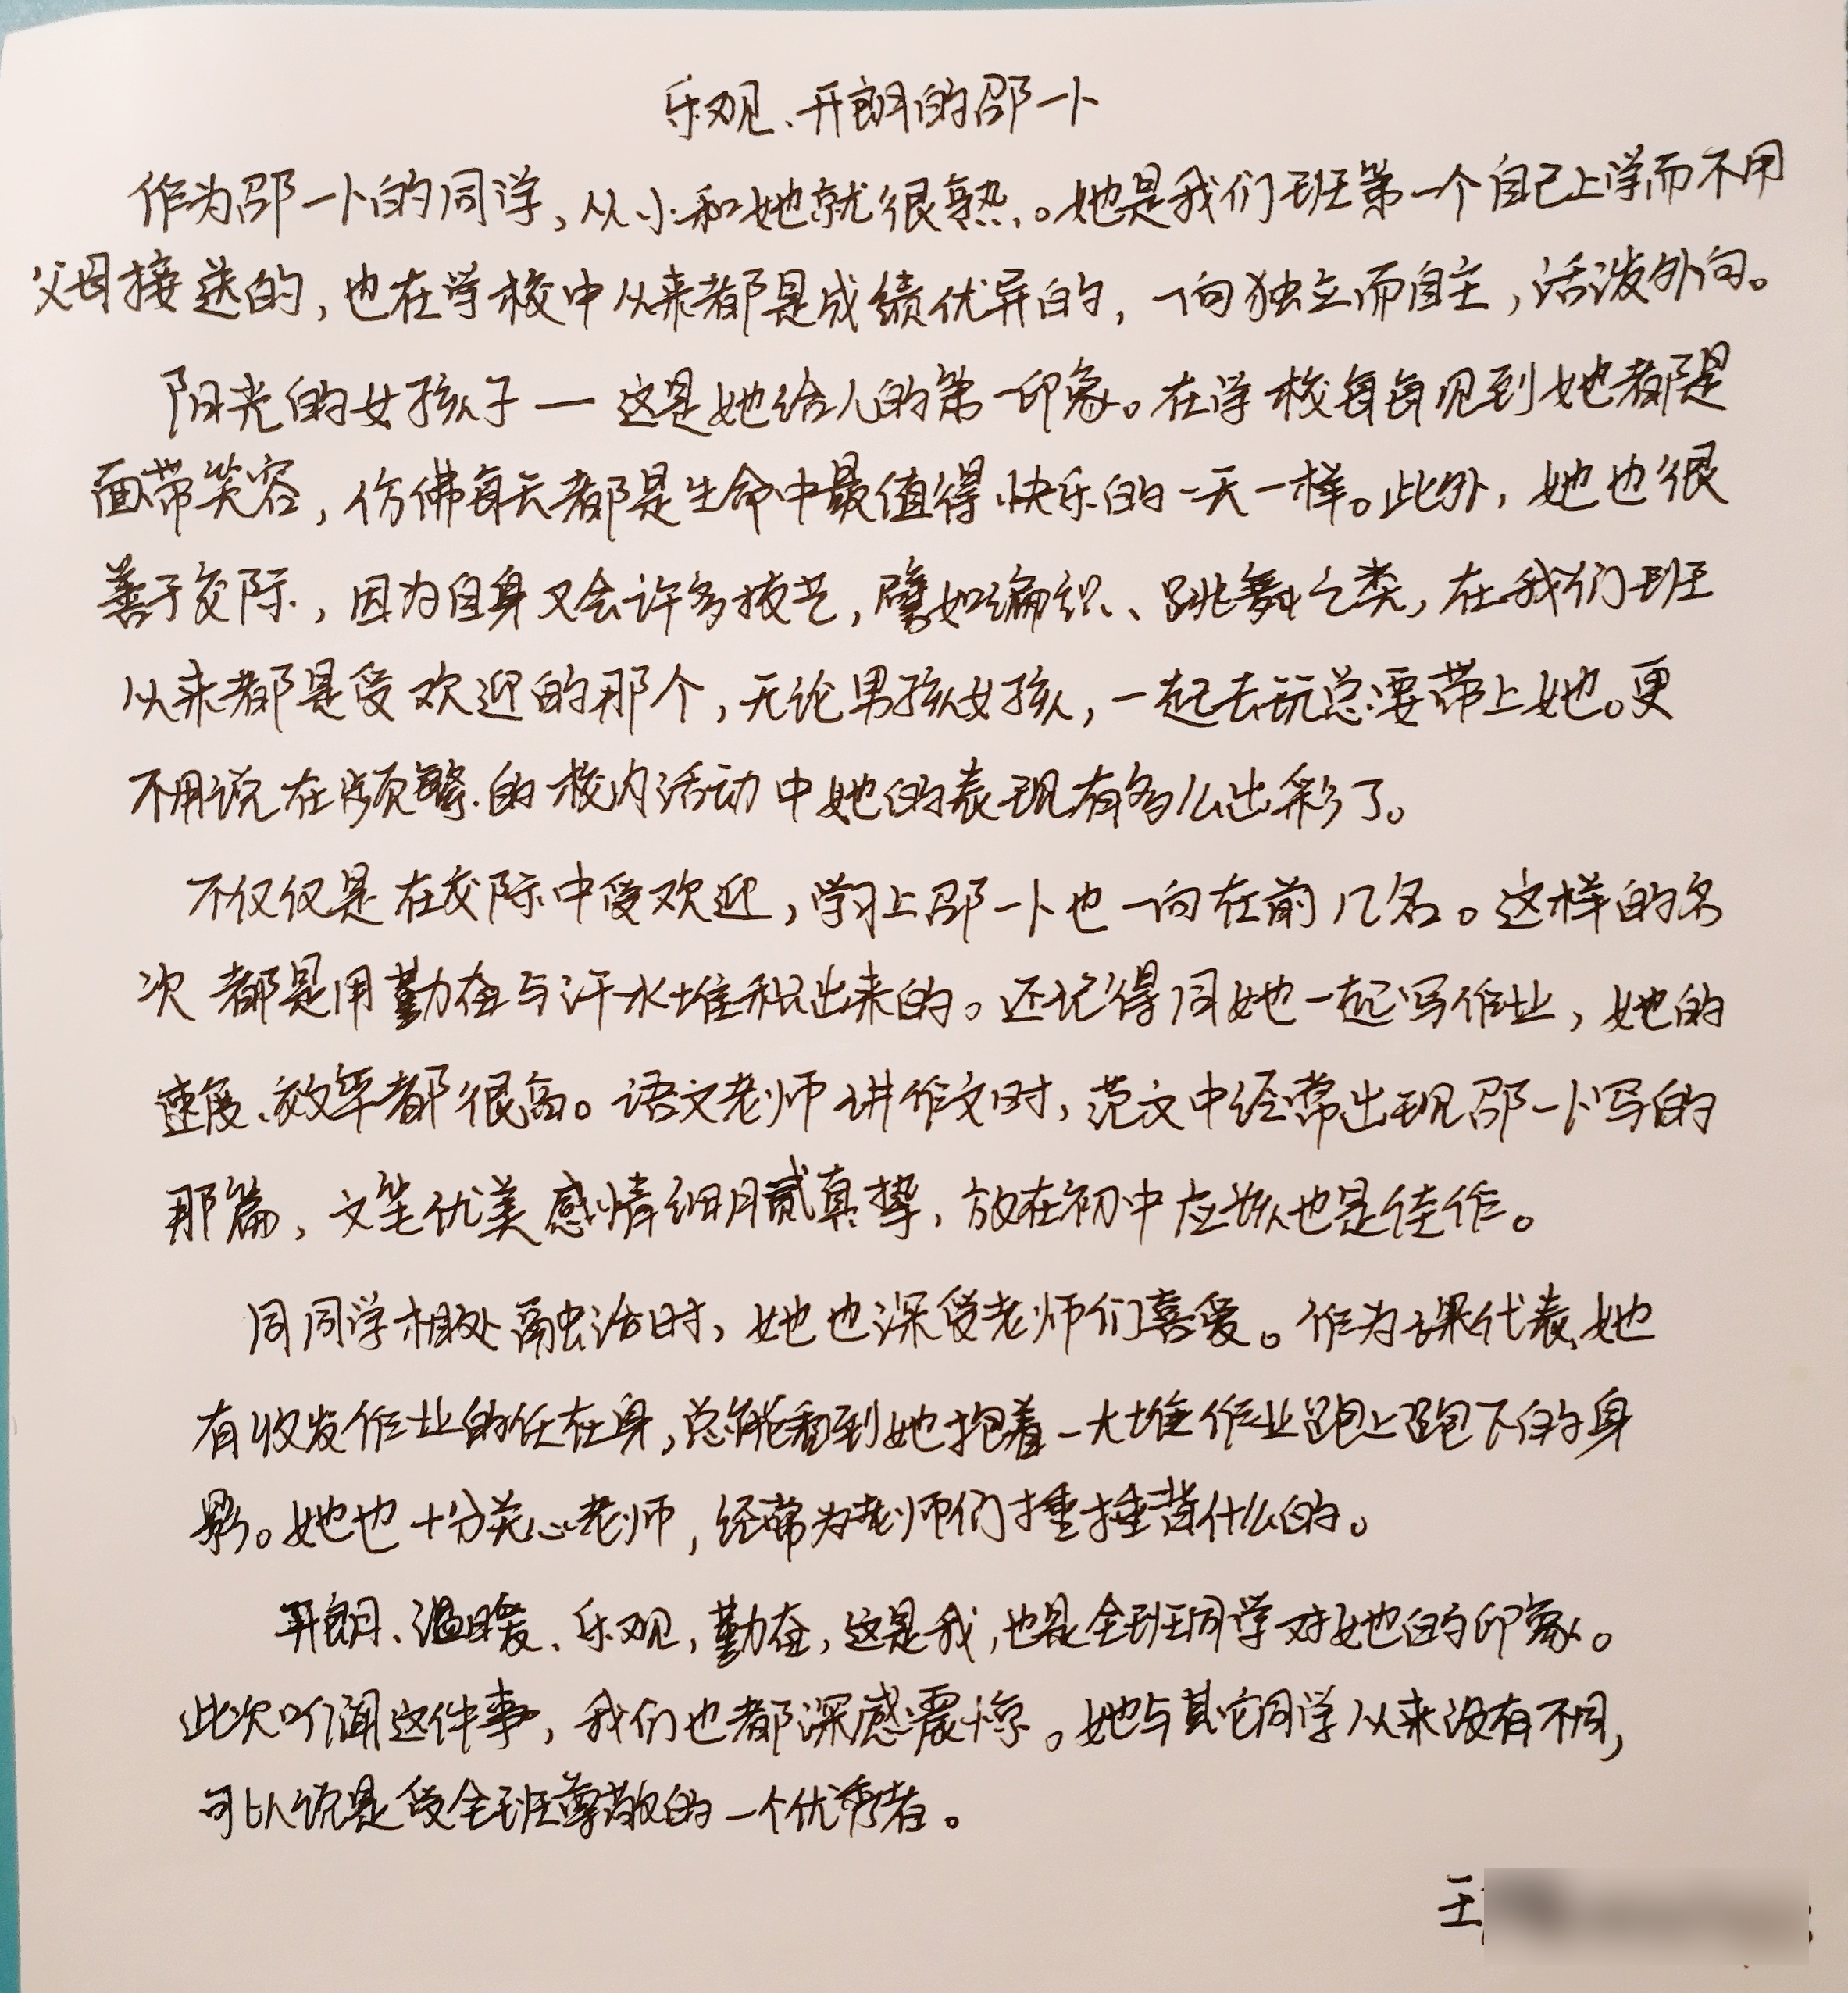 乐观、开朗的邵一卜
作为邵一卜的同学，从小和她就很熟。她是我们班第一个自己上学而不用
父母接送的，也在学校中从来都是成绩优异的，一向独立而自主，活泼外向。
阳光的女孩子—这是她给人的第一印象。在学校每每见到她都是
面带笑容，仿佛每天都是生命中最值得快乐的一天一样。此外，她也很
善于交际，因为自身又会许多技艺，譬如编织、跳舞之类，在我们班
从来都是受欢迎的那个，无论男孩女孩，一起去玩总要带上她。更
不用说在频繁的校内活动中她的表现有多么出彩了。
不仅仅是在交际中受欢迎，学习上邵一卜也一向在前几名。这样的名
次都是用勤奋与汗水堆积出来的。还记得同她一起写作业，她的
速度、效率都很高。语文老师讲作文时，范文中经常出现邵一卜写的
那篇，文笔优美感情细腻真挚，放在初中应该也是佳作。
同同学相处融洽时，她也深受老师们喜爱。作为课代表，她
有收发作业的任在身，总能看到她抱着一大堆作业跑上跑下的身
影。她也十分关心老师，经常为老师们捶捶背什么的。
开朗、温暖、乐观，勤奋，这是我，也是全班同学对她的印象。
此次听闻这件事，我们也都深感震惊。她与其它同学从来没有不同，
可以说是受全班尊敬的一个优秀者。
王